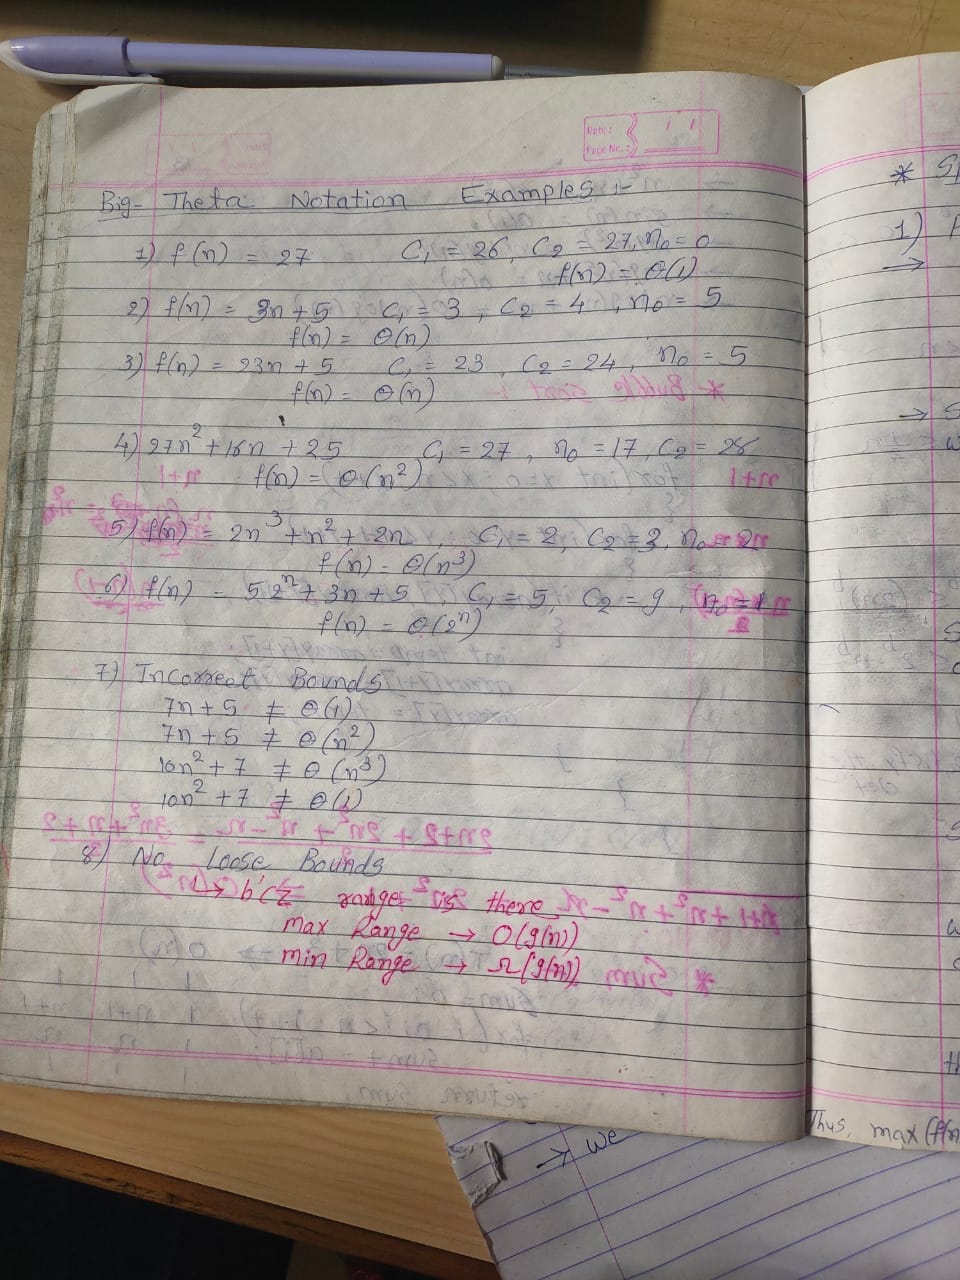 Date:
Page No.:
Big- Theta Notation Examples :-
1) f(n) = 27 C₁ = 26, C₂ = 27, n₀ = 0
f(n) = θ(1)
2) f(n) = 3n+5 C₁ = 3, C₂ = 4, n₀ = 5
f(n) = θ(n)
3) f(n) = 23n + 5 C₁ = 23, C₂ = 24, n₀ = 5
f(n) = θ(n)
4) 27n² + 16n + 25 C₁ = 27, n₀ = 17, C₂ = 28
f(n) = θ(n²)
5) f(n) = 2n³ + n² + 2n, C₁ = 2, C₂ = 3, n₀ = 2
f(n) = θ(n³)
6) f(n) = 5.2ⁿ + 3n + 5, C₁ = 5, C₂ = 9, n₀ = 1
f(n) = θ(2ⁿ)
7) Incorrect Bounds
7n + 5 ≠ θ(1)
7n + 5 ≠ θ(n²)
10n² + 7 ≠ θ(n³)
10n² + 7 ≠ θ(1)
8) No Loose Bounds
↳ b'cz range is there
max Range → O(g(n))
min Range → Ω(g(n))
* Sp
1)
→
→ S
Thus, max (f(n
→ we